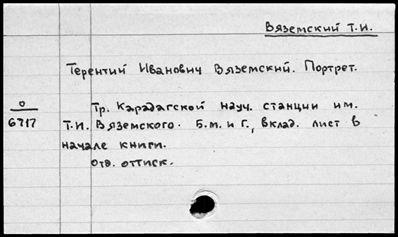 Вяземский Т.И.
Терентий Иванович Вяземский. Портрет.
О
6717
Тр. Карадагской науч. станции им.
Т.И. Вяземского. Б.м. и г., вклад. лист в
начале книги.
Отд. оттиск.